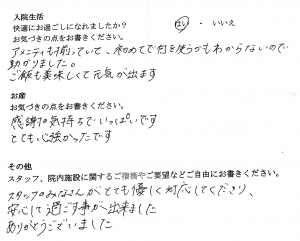 入院生活
快適にお過ごしになれましたか? はい ・ いいえ
お気づきの点をお書きください。
アメニティも揃っていて、初めてで何を使うかもわからないので
助かりました。
ご飯も美味しくて元気が出ます
お産
お気づきの点をお書きください。
感謝の気持ちでいっぱいです
とても心強かったです
その他
スタッフ、院内施設に関するご指摘やご要望などご自由にお書きください。
スタッフのみなさんがとても優しく対応してくださり、
安心して過ごす事が出来ました
ありがとうございました